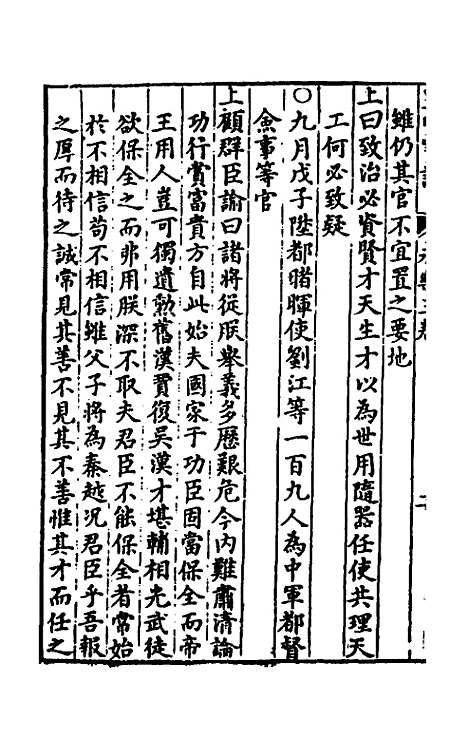 雖仍其官不宜置之要地
上曰致治必資賢才天生才以為世用隨器任使共理天
工何必致疑
○九月戊子陞都指揮使劉江等一百九人為中軍都督
僉事等官
上顧群臣諭曰諸將從朕舉義多歷艱危今內難肅清論
功行賞富貴方自此始夫國家于功臣固當保全而帝
王用人豈可獨遺勲舊漢賈復吳漢才堪輔相光武徒
欲保全之而弗用朕深不取夫君臣不能保全者常始
於不相信苟不相信雖父子將為秦越況君臣乎吾報
之厚而待之誠常見其善不見其不善惟其才而任之